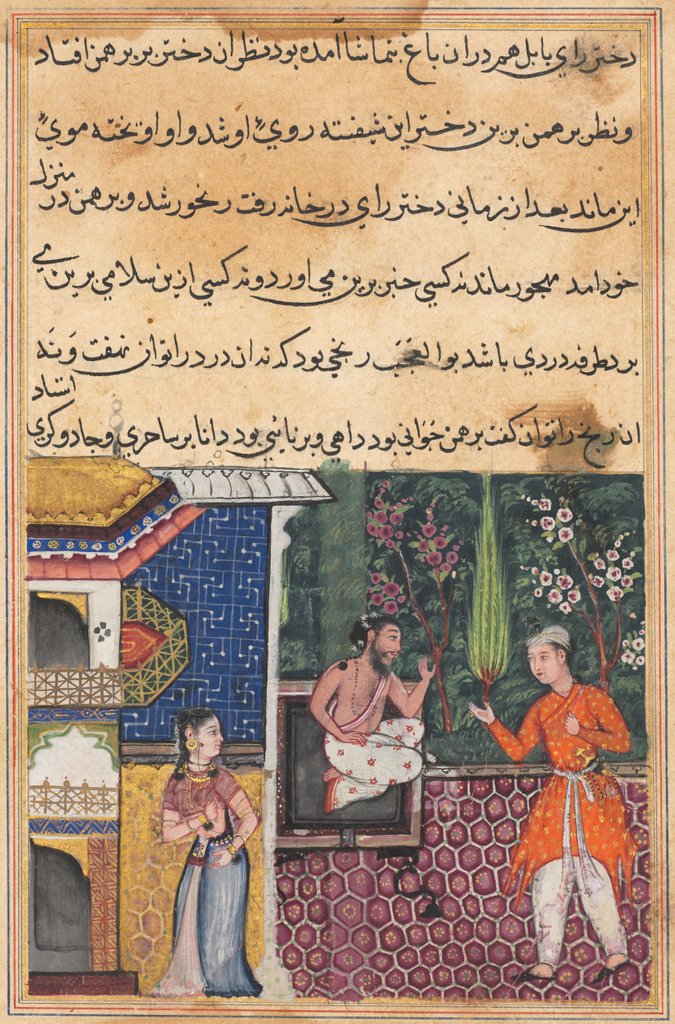 دختر راي بابل هم دران باغ بتماشا آمده بود نظر ان دختر بر برهمن افتاد
ونظر برهمن برين دختر اين شيفته رويِ او شد و او اوفتخته مويِ
اين ماند بعد از زماني دختر راي در خانه رفت رنجور شد و برهمن در منزل
خود امد مهجور ماند نه كسي خبر برين مي اورد و نه كسي ازين سلامي برين مي
برد طرفه دردي باشد بوالعجب رنجي بود كه نه ان درد را توان نهفت وَنَه
ان رنج را توان كفت برهمن جُواني بود داهي و برنائي بود دانا بر ساحري و جادوكري استاد